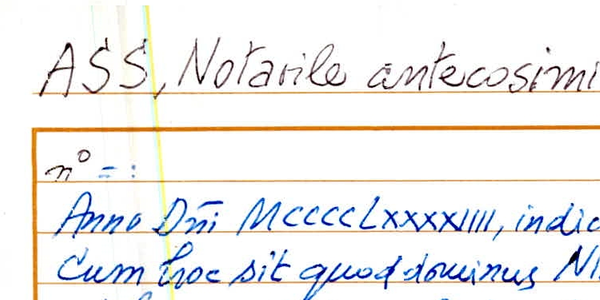 ASS, Notarile antecosimi
n° = :
Anno Dñi MCCCCLXXXXVIIII, indic
Cum hoc sit quod dominus Ni